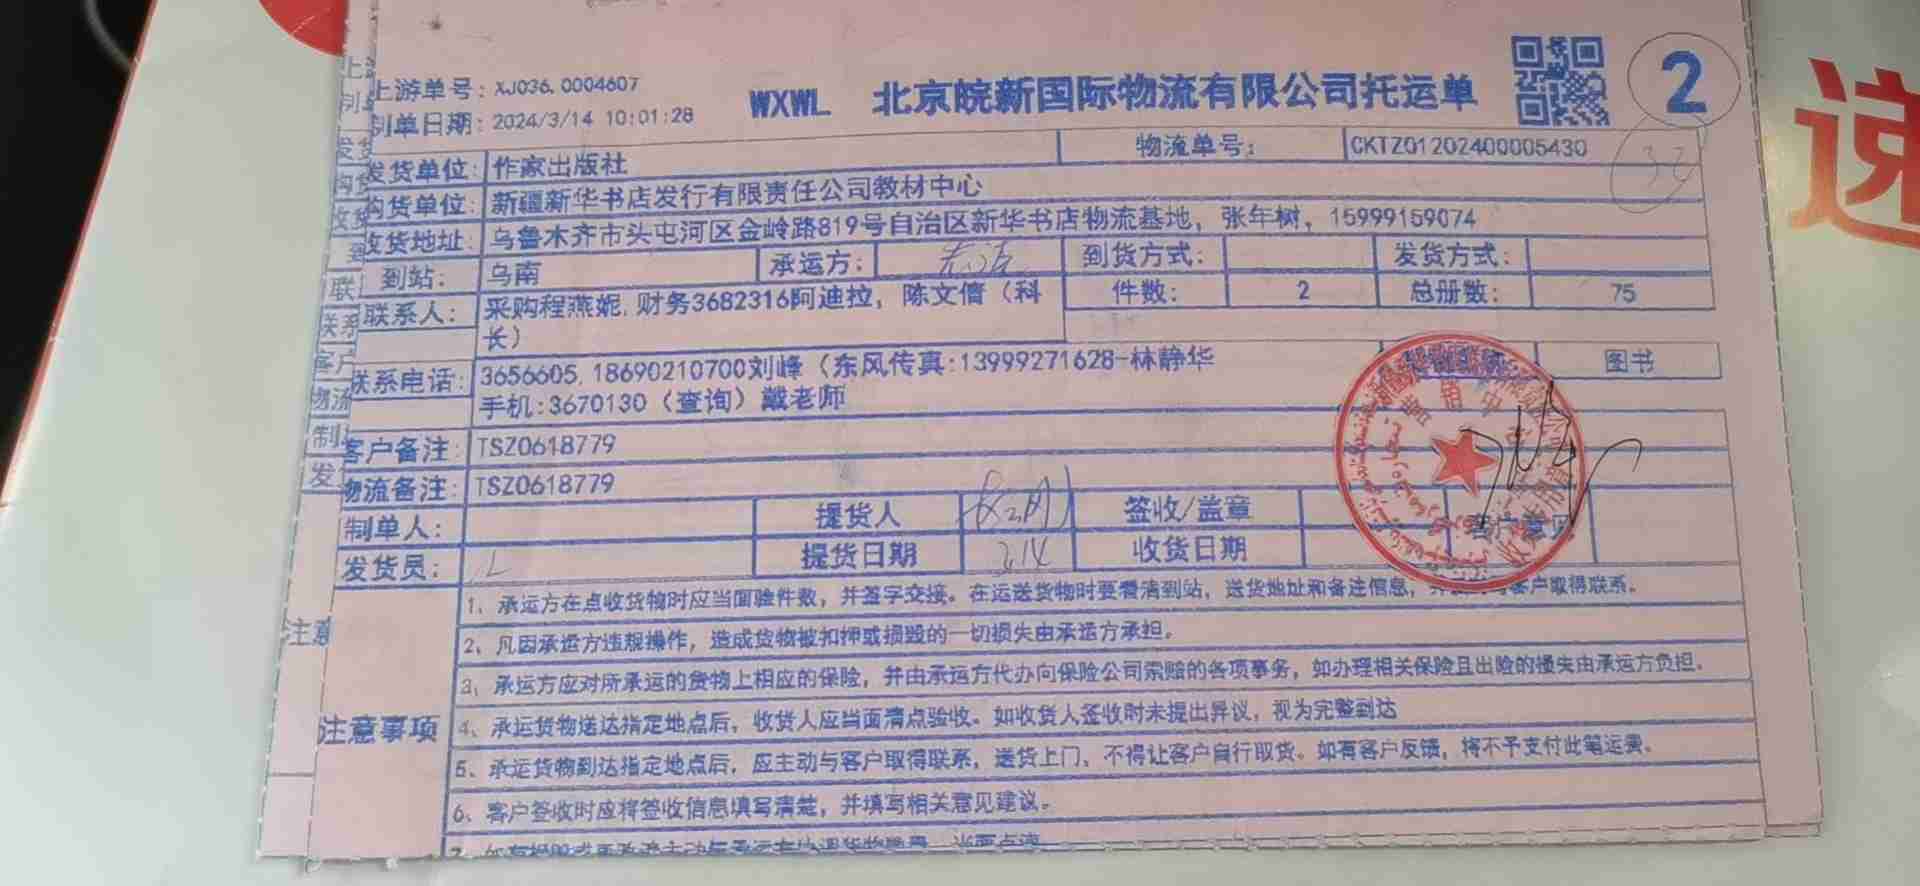 上游单号：XJ036.0004607
制单日期：2024/3/14 10:01:28
WXWL 北京皖新国际物流有限公司托运单
2
发货单位： 作家出版社 物流单号： CKTZ01202400005430
购货单位： 新疆新华书店发行有限责任公司教材中心
收货地址： 乌鲁木齐市头屯河区金岭路819号自治区新华书店物流基地，张年树，15999159074
到站： 乌南 承运方： 到货方式： 发货方式：
联系人： 采购程燕妮,财务3682316阿迪拉，陈文倩（科 件数： 2 总册数： 75
长）
联系电话： 3656605,18690210700刘峰（东风传真:13999271628-林静华 图书
手机:3670130（查询）戴老师
客户备注： TSZ0618779
物流备注： TSZ0618779
制单人： 提货人 签收/盖章 客户意见
发货员： 提货日期 3.14 收货日期
注意事项
1、承运方在点收货物时应当面验件数，并签字交接。在运送货物时要看清到站，送货地址和备注信息，客户取得联系。
2、凡因承运方违规操作，造成货物被扣押或损毁的一切损失由承运方承担。
3、承运方应对所承运的货物上相应的保险，并由承运方代办向保险公司索赔的各项事务，如办理相关保险且出险的损失由承运方负担。
4、承运货物送达指定地点后，收货人应当面清点验收。如收货人签收时未提出异议，视为完整到达
5、承运货物到达指定地点后，应主动与客户取得联系，送货上门，不得让客户自行取货。如有客户反馈，将不予支付此笔运费。
6、客户签收时应将签收信息填写清楚，并填写相关意见建议。
速